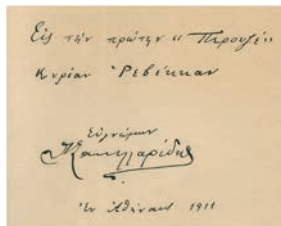 Εἰς τὴν πρώτην «Περουζέ»
Κυρίαν Ῥεβέκκαν
Εὐγνώμων
Σακελλαρίδης
Ἐν Ἀθήναις 1911